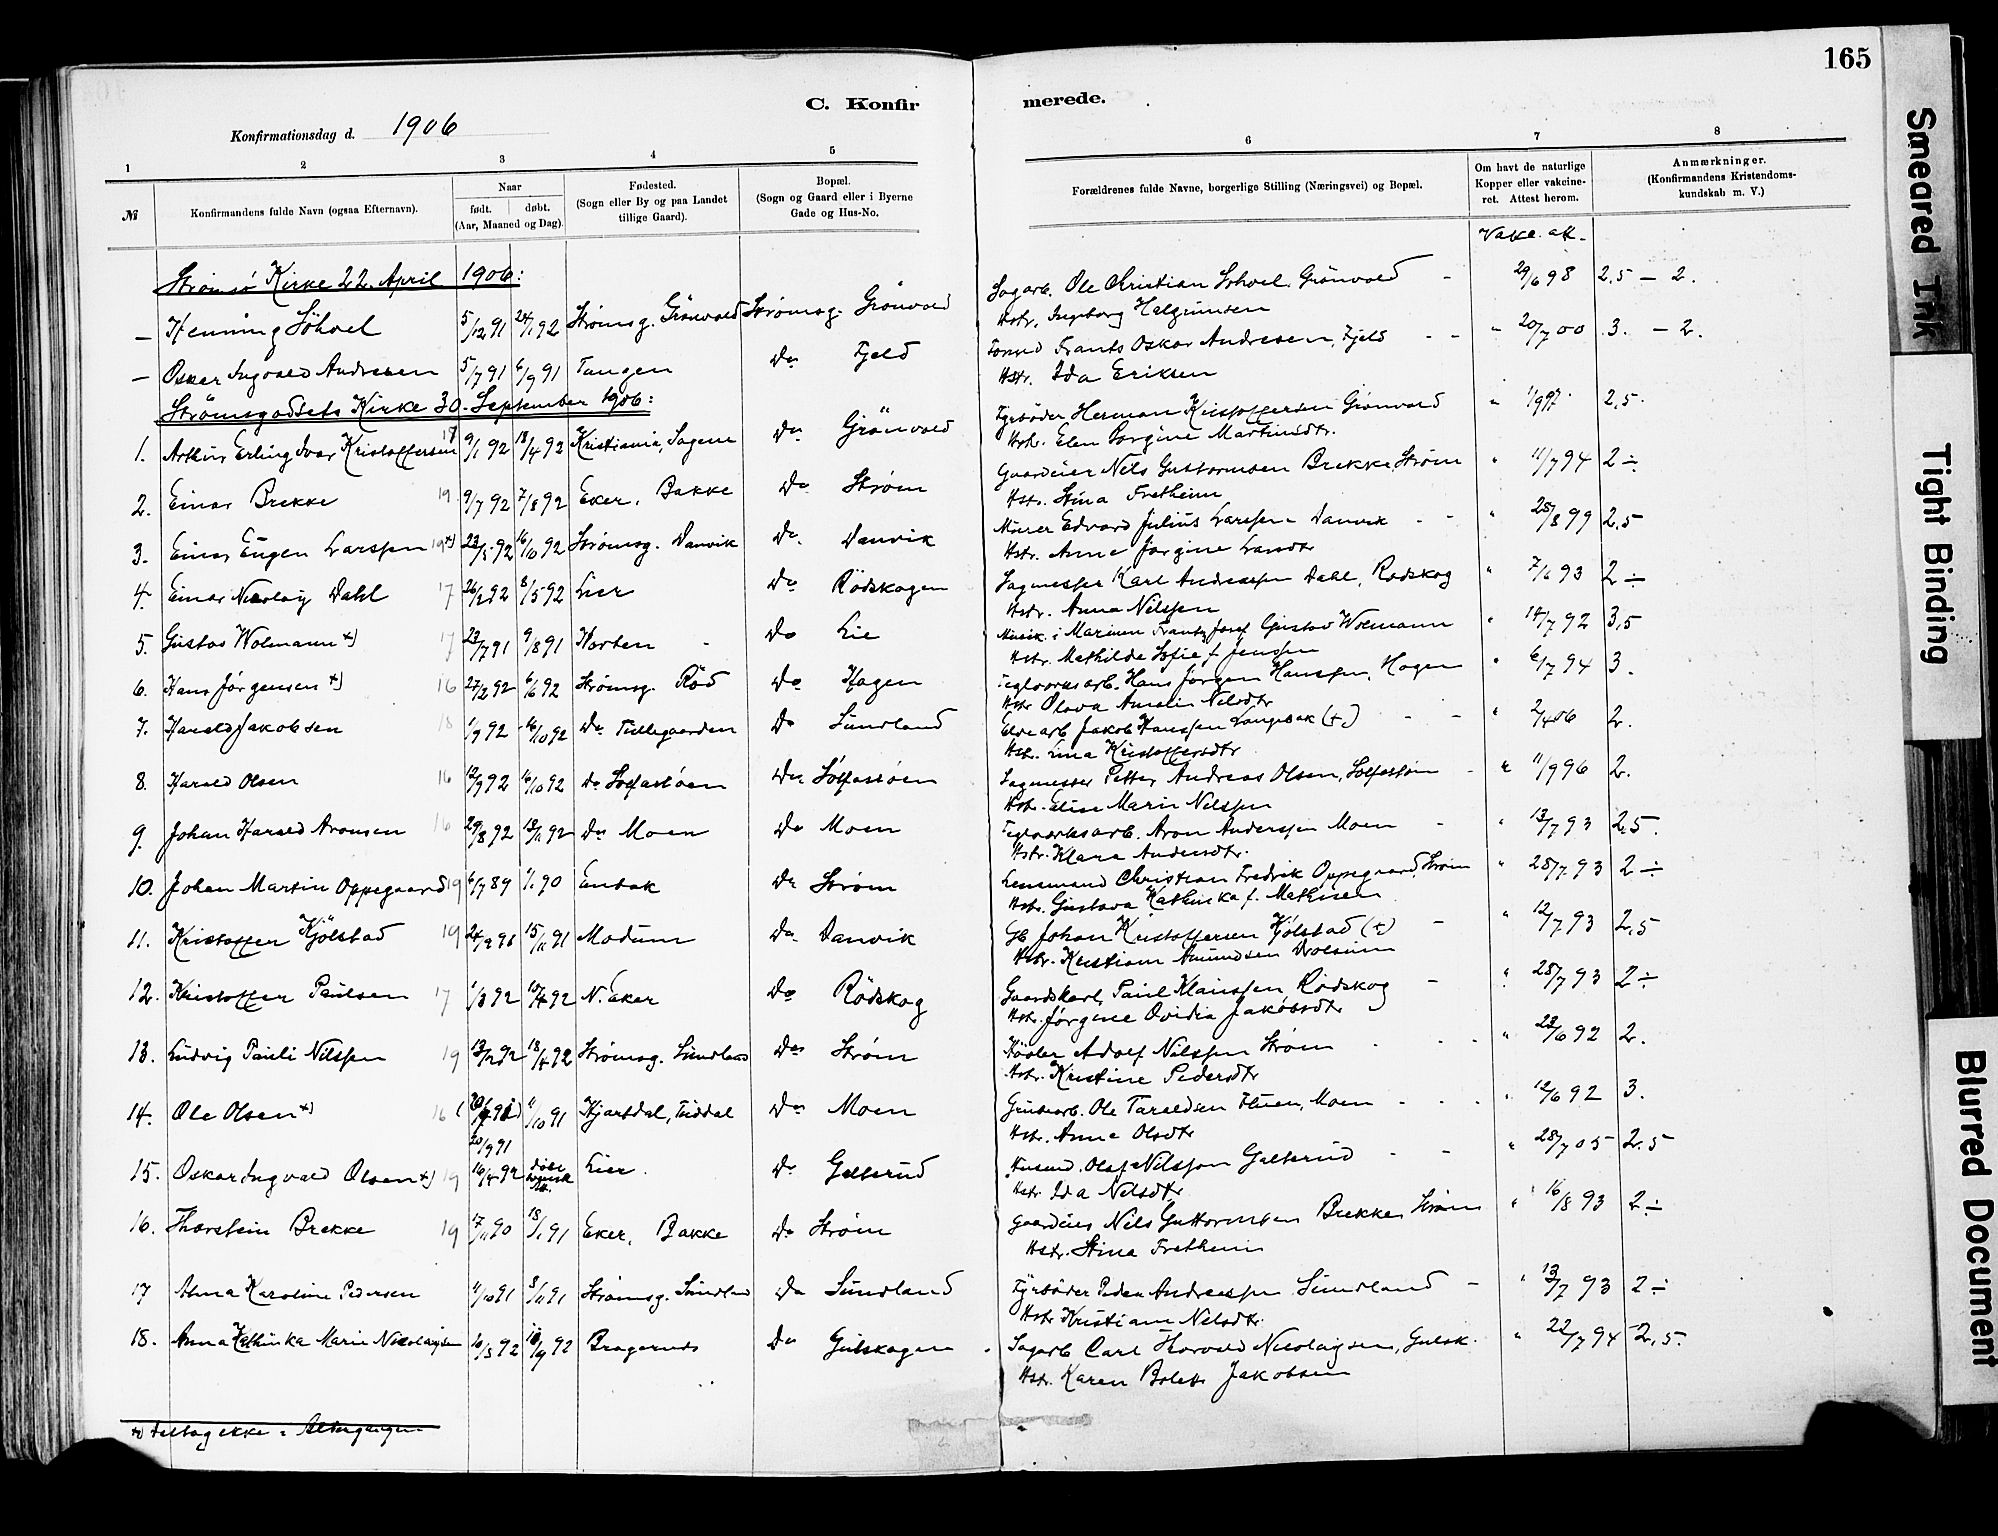 165
C. Konfirmerede.
Konfirmationsdag d. 1906
1 2 3 4 5 6 7 8
№
Konfirmandens fulde Navn (ogsaa Efternavn).
Naar
født. døbt.
(Aar, Maaned og Dag).
Fødested.
(Sogn eller By og paa Landet
tillige Gaard).
Bopæl.
(Sogn og Gaard eller i Byerne
Gade og Hus-No.
Forældrenes fulde Navne, borgerlige Stilling (Næringsvei) og Bopæl.
Om havt de naturlige
Kopper eller vakcine-
ret. Attest herom.
Anmærkninger.
(Konfirmandens Kristendoms-
kundskab m. V.)
Vakc. att.
Strømsø Kirke 22. April 1906:
— Henning Søhoel 5/12 91 24/1 92 Strømsg. Grönvold Strømsg. Grönvold Sagarb. Ole Christian Sohoel Grönvold 29/6 98 2.5 – 2.
Hstr. Ingeborg Halgrimsen
— Oskar Ingvald Andresen 5/7 91 6/9 91 Tangen Do Fjeld Frants Oskar Andresen, Fjeld " 20/7 00 3. – 2.
Hstr. Ida Eriksen
Strømsgodsets Kirke 30. September 1906:
1. Arthur Erling Ivar Kristoffersen 17 9/1 92 18/4 92 Kristiania, Sagene Do Grönvold Fyrbøder Herman Kristoffersen Grönvold " 1/9 97 2,5.
Hstr. Elen Jorgine Martinsdtr.
2. Einar Brekke 19 9/7 92 7/8 92 Eker, Bakke Do Strøm Gaardeier Nils Guttormsen Brekke Strøm " 11/7 94 2 ÷
Hstr. Stina Fretheim
3. Einar Eugen Larssen 19 +) 23/5 92 16/10 92 Strømsg. Danvik Do Danvik Murer Edvard Julius Larssen Danvik " 25/8 99 2,5
Hstr. Anne Jørgine Larsdtr
4. Einar Nicolay Dahl 17 26/2 92 8/5 92 Lier Do Rødskogen Sagmester Karl Andreassen Dahl, Rødskog " 7/6 93 2 ÷
Hstr. Anna Nilssen
5. Gustav Wolmann +) 17 23/7 91 9/8 91 Horten Do Lie Musik. i Marinen Frantz Josef Gustav Wolmann " 14/7 92 3,5
Hstr. Mathilde Sofie f. Jenssen
6. Hans Jørgensen +) 16 27/2 92 6/6 92 Strømsg. Rød Do Hagen Teglverksarb. Hans Jørgen Hanssen, Hagen " 6/7 94 3.
Hstr Olava Amalie Nilsdtr
7. Harald Jakobsen 18 1/9 92 16/10 92 Do Tollegaarden Do Sundland Elvearb Jakob Hanssen Langesak (+) " 2/4 06 2.
Hstr. Lina Kristoffersdtr
8. Harald Olsen 16 12/9 92 16/10 92 Do Solfastøen Do Solfastøen Sagmester Petter Andreas Olsen, Solfastøen " 11/9 96 2.
Hstr. Elise Marie Nilssen
9. Johan Harald Aronsen 16 29/8 92 13/11 92 Do Moen Do Moen Teglverksarb. Aron Anderssen Moen " 13/7 93 2,5.
Hstr. Klara Andersdtr.
10. Johan Martin Oppegaard 19 6/7 89 1/1 90 Enebak Do Strøm Lensmand Christian Fredrik Oppegaard Strøm " 25/7 93 2 ÷
Hstr. Gustava Kathinka f. Mathisen
11. Kristoffer Kjølstad 19 15/11 91 Modum Do Danvik Gb. Johan Kristoffersen Kjølstad (+) " 12/7 93 2,5
Hstr. Kristiane Amundsen
12. Kristoffer Paulsen 17 1/3 92 N. Eker Do Rødskog Gaardskarl Paul Klaussen Rødskog " 25/7 93 2 ÷
Hstr. Jørgine Ovidia Jakobsdtr
13. Ludvig Pauli Nilssen 19 13/2 92 18/4 92 Strømsg. Sundland Do Strøm Adolf Nilssen Strøm " 23/6 92 2.
Hstr. Kristine Pedersdtr
14. Ole Olsen +) 16 11/10 91 Hjartdal, Tuddal Do Moen Ole Taraldsen Moen " 12/6 92 3.
20/9 91
Hstr. Anne Olsdtr
15. Oskar Ingvald Olsen +) 19 16/4 92 Lier Do Gulterud Husmd. Olaf Nilsson Gulterud " 28/7 05 2.5
Hstr Ida Nilsdtr
16. Thorstein Brekke 19 17/11 90 18/1 91 Eker, Bakke Do Strøm Gaardeier Nils Guttormsen Brekke Strøm " 16/8 93 2 ÷
Hstr. Stina Fretheim
17 Alma Karoline Pedersen 11/10 91 8/11 91 Strømsg. Sundland Do Sundland Fyrbøder Peder Andreassen Sundland " 13/7 93 2 ÷
Hstr Kristiane Nilsdtr
18. Anna Kathinka Marie Nicolaysen 10/5 92 18/9 92 Bragernes Do Gulskogen Sagarb Carl Thorvald Nicolaysen, Gulsk. " 22/7 94 2,5.
Hstr. Karen Bolette Jakobsen
+) deltog ikke i Altergangen
Smeared Ink
Tight Binding
Blurred Document